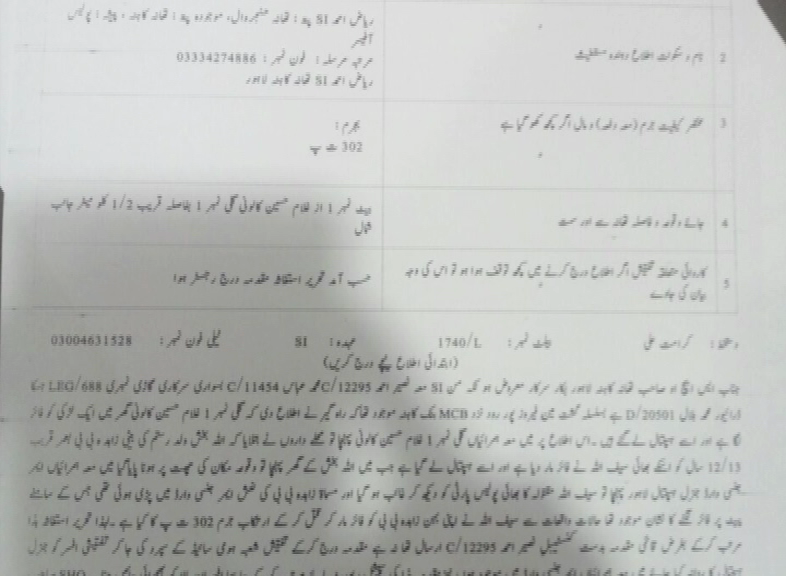 ریاض احمد SI پتہ : تھانہ ہنجروال، موجودہ پتہ : تھانہ کاہنہ ، پیشہ : پولیس
آفیسر
2 نام و سکونت اطلاع دہندہ مستغیث
مرتب مرسلہ : فون نمبر : 03334274886
ریاض احمد SI تھانہ کاہنہ لاہور
3 مختصر کیفیت جرم (معہ دفعہ) و مال اگر کچھ کھو گیا ہے
بجرم :
302 ت پ
4 جائے وقوعہ و فاصلہ تھانہ سے اور سمت
بیٹ نمبر 1 از غلام حسین کالونی گلی نمبر 1 بفاصلہ قریب 1/2 کلو میٹر جانب
شمال
5 کاروائی متعلقہ تفتیش اگر اطلاع درج کرنے میں کچھ توقف ہوا ہو تو اس کی وجہ
بیان کی جاوے
حسب آمد تحریر استغاثہ مقدمہ درج رجسٹر ہوا
دستخط : کرامت علی بیلٹ نمبر : 1740/L عہدہ : SI ٹیلی فون نمبر : 03004631528
(ابتدائی اطلاع نیچے درج کریں)
جناب ایس ایچ او صاحب تھانہ کاہنہ لاہور بکار سرکار معروض ہو کہ من SI معہ نصیر احمد 12295/C محمد عباس 11454/C بسواری سرکاری گاڑی نمبری LEG/688 جسکا
ڈرائیور محمد بلال 20501/D ہے بسلسلہ گشت مین فیروز پور روڈ نزد MCB بنک کاہنہ موجود تھا کہ راہ گیر نے اطلاع دی کہ گلی نمبر 1 غلام حسین کالونی گھر میں ایک لڑکی کو فائر
لگا ہے اور اسے ہسپتال لے گئے ہیں ۔ اس اطلاع پر میں معہ ہمراہیاں گلی نمبر 1 غلام حسین کالونی پہنچا تو محلے داروں نے بتلایا کہ اللہ بخش ولد رستم کی بیٹی زاہدہ بی بی بعمر قریب
12/13 سال کو اسکے بھائی سیف اللہ نے فائر مار دیا ہے اور اسے ہسپتال لے گیا ہے جب میں اللہ بخش کے گھر پہنچا تو وقوعہ مکان کی چھت پر ہونا پایا گیا میں معہ ہمراہیاں ایمر
جنسی وارڈ جنرل ہسپتال لاہور پہنچا تو سیف اللہ مقتولہ کا بھائی پولیس پارٹی کو دیکھ کر غائب ہو گیا اور مسماۃ زاہدہ بی بی کی نعش ایمر جنسی وارڈ میں پڑی ہوئی تھی جس کے سامنے
پیٹ پر فائر لگنے کا نشان موجود تھا حالات واقعات سے سیف اللہ نے اپنی بہن زاہدہ بی بی کو فائر مار کر قتل کر کے ارتکاب جرم 302 ت پ کا کیا ہے ۔ لہذا تحریر استغاثہ ہذا
مرتب کر کے بغرض قائمی مقدمہ بدست کنسٹیبل نصیر احمد 12295/C ارسال تھانہ ہے مقدمہ درج کر کے تفتیش شعبہ ہومی سائیڈ کے سپرد کی جا کر تفتیشی افسر کو جنرل